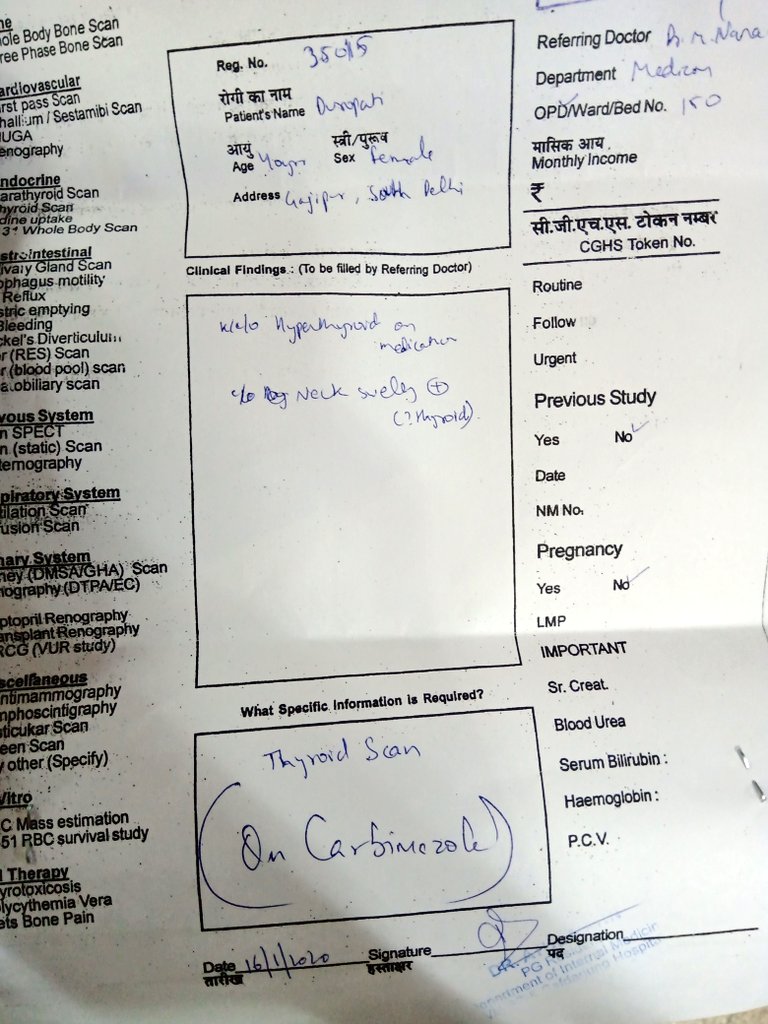 ole Body Bone Scan
ree Phase Bone Scan
ardiovascular
rst pass Scan
hallium / Sestamibi Scan
UGA
enography
ndocrine
arathyroid Scan
hyroid Scan
dine uptake
31 Whole Body Scan
strointestinal
ivary Gland Scan
ophagus motility
Reflux
stric emptying
Bleeding
ckel's Diverticulum
r (RES) Scan
r (blood pool) scan
a.obiliary scan
vous System
n SPECT
n (static) Scan
ternography
piratory System
tilation Scan
fusion Scan
nary System
ney (DMSA/GHA) Scan
nography (DTPA/EC)
ptopril Renography
ansplant Renography
RCG (VUR study)
scellaneous
ntimammography
mphoscintigraphy
ticukar Scan
een Scan
y other (Specify)
Vitro
C Mass estimation
51 RBC survival study
l Therapy
yrotoxicosis
lycythemia Vera
ets Bone Pain
Reg. No. 35015
रोगी का नाम
Patient's Name
आयु स्त्री/पुरूष
Age Sex female
Address Gajipur, South Delhi
Clinical Findings : (To be filled by Referring Doctor)
k/c/o Hyperthyroid on
medication
c/o Neck swelling ⊕
(? thyroid)
What Specific Information is Required?
Thyroid Scan
(On Carbimazole)
Date 16/1/2020 Signature Designation
तारीख हस्ताक्षर पद
Referring Doctor
Department Medicine
OPD/Ward/Bed No. 150
मासिक आय
Monthly Income
₹
सी.जी.एच.एस. टोकन नम्बर
CGHS Token No.
Routine
Follow
Urgent
Previous Study
Yes No ✓
Date
NM No.
Pregnancy
Yes No ✓
LMP
IMPORTANT
Sr. Creat.
Blood Urea
Serum Bilirubin :
Haemoglobin :
P.C.V.